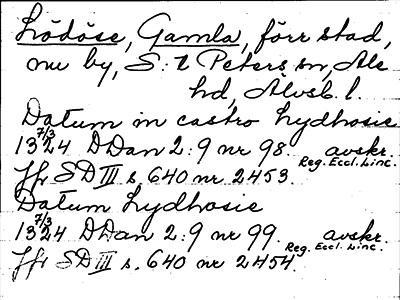 Lödöse, Gamla, förr stad,
nu by, S:t Peters sn, Ale
hd, Älvsb. l.
Datum in castro Lydhosie
13 7/3 24 DDan 2:9 nr 98. avskr.
Reg. Eccl. Linc.
Jfr SD III s. 640 nr 2453.
Datum Lydhosie
13 7/3 24 DDan 2:9 nr 99. avskr.
Reg. Eccl. Linc.
Jfr SD III s. 640 nr 2454.